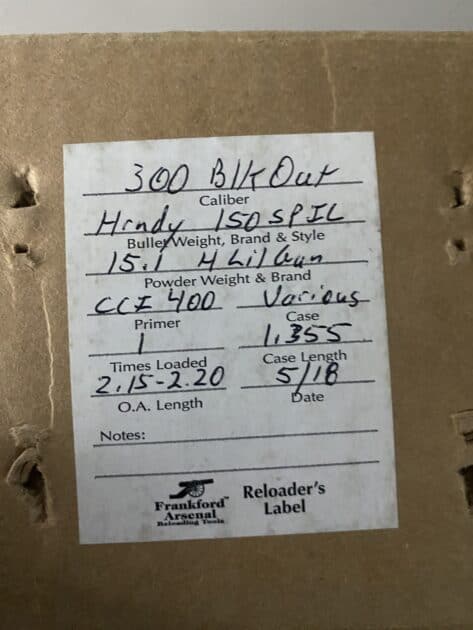 300 Blk Out
Caliber
Hrndy 150 SP IL
Bullet Weight, Brand & Style
15.1 H Lil Gun
Powder Weight & Brand
CCI 400 Various
Primer Case
1 1.355
Times Loaded Case Length
2.15-2.20 5/18
O.A. Length Date
Notes:
Frankford™ Reloader's
Arsenal Label
Reloading Tools